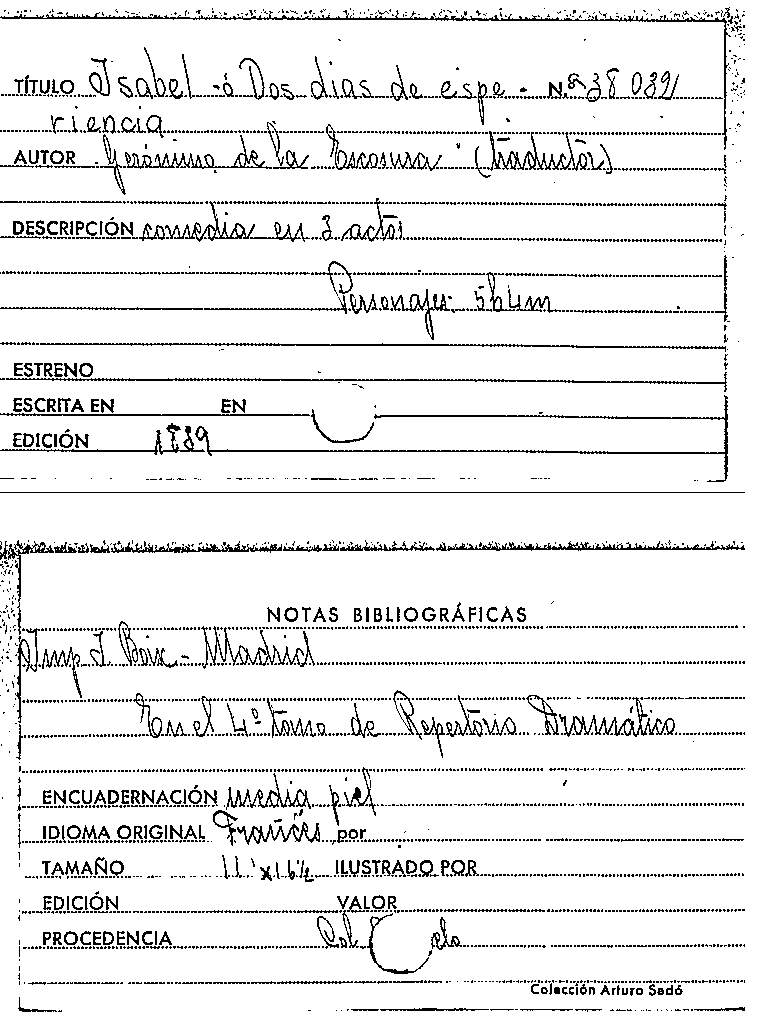 TÍTULO Isabel -ó Dos dias de espe- N.º 38 039
riencia
AUTOR Gerónimo de la Escosura (traductor)
DESCRIPCIÓN comedia en 3 actos
Personajes. 5h 4m
ESTRENO
ESCRITA EN EN
EDICIÓN 1839
NOTAS BIBLIOGRÁFICAS
Imp I Boix - Madrid
En el 4º tomo de Repertorio Dramático
ENCUADERNACIÓN media piel
IDIOMA ORIGINAL Francés por
TAMAÑO 11'x16½ ILUSTRADO POR
EDICIÓN VALOR
PROCEDENCIA Col
Colección Arturo Sedó